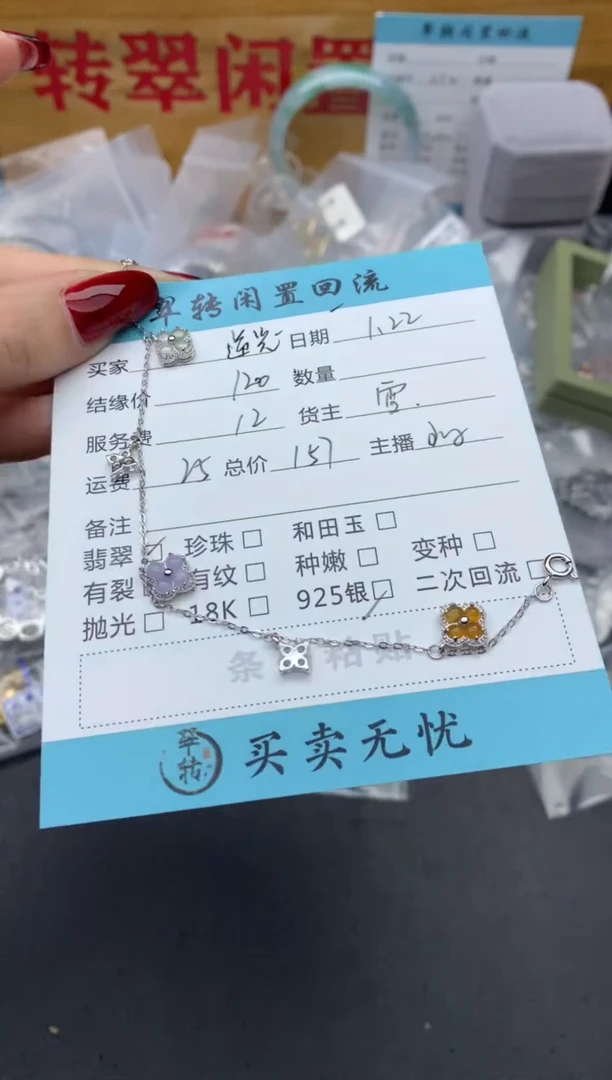 转翠闲置
翠转闲置回流
买家 逆光 日期 1.22
结缘价 120 数量
服务费 12 货主 雪.
运费 25 总价 157 主播
备注
翡翠 珍珠 和田玉
有裂 有纹 种嫩 变种
抛光 18K 925银 二次回流
条 粘贴
翠转 买卖无忧